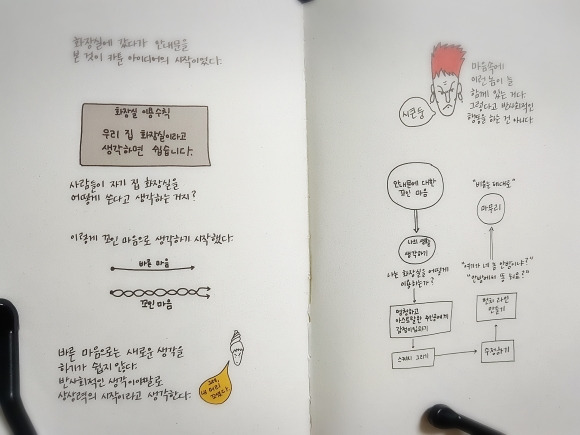 화장실에 갔다가 안내문을
본 것이 카툰 아이디어의 시작이었다.
화장실 이용수칙
우리 집 화장실이라고
생각하면 쉽습니다.
사람들이 자기 집 화장실을
어떻게 쓴다고 생각하는 거지?
이렇게 꼬인 마음으로 생각하기 시작했다.
바른 마음
꼬인 마음
바른 마음으로는 새로운 생각을
하기가 쉽지 않다.
반사회적인 생각이야말로
상상력의 시작이라고 생각한다.
그래,
내 머리
꼬였다.
마음속에
이런 놈이 늘
함께 있는 거다.
그렇다고 반사회적인
행동을 하는 건 아니다.
시큰둥
안내문에 대한
꼬인 마음
나의 생활
생각하기
나는 화장실을 어떻게
이용하는가?
멍청하고
스케치 그리기
수정하기
펀치 라인
만들기
"여기가 네 놈 안방이냐?"
"안방에서 똥 눠요?"
마무리